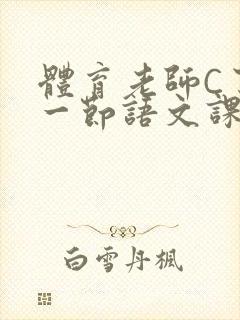 體育老師C了
一節語文課
白雪丹楓